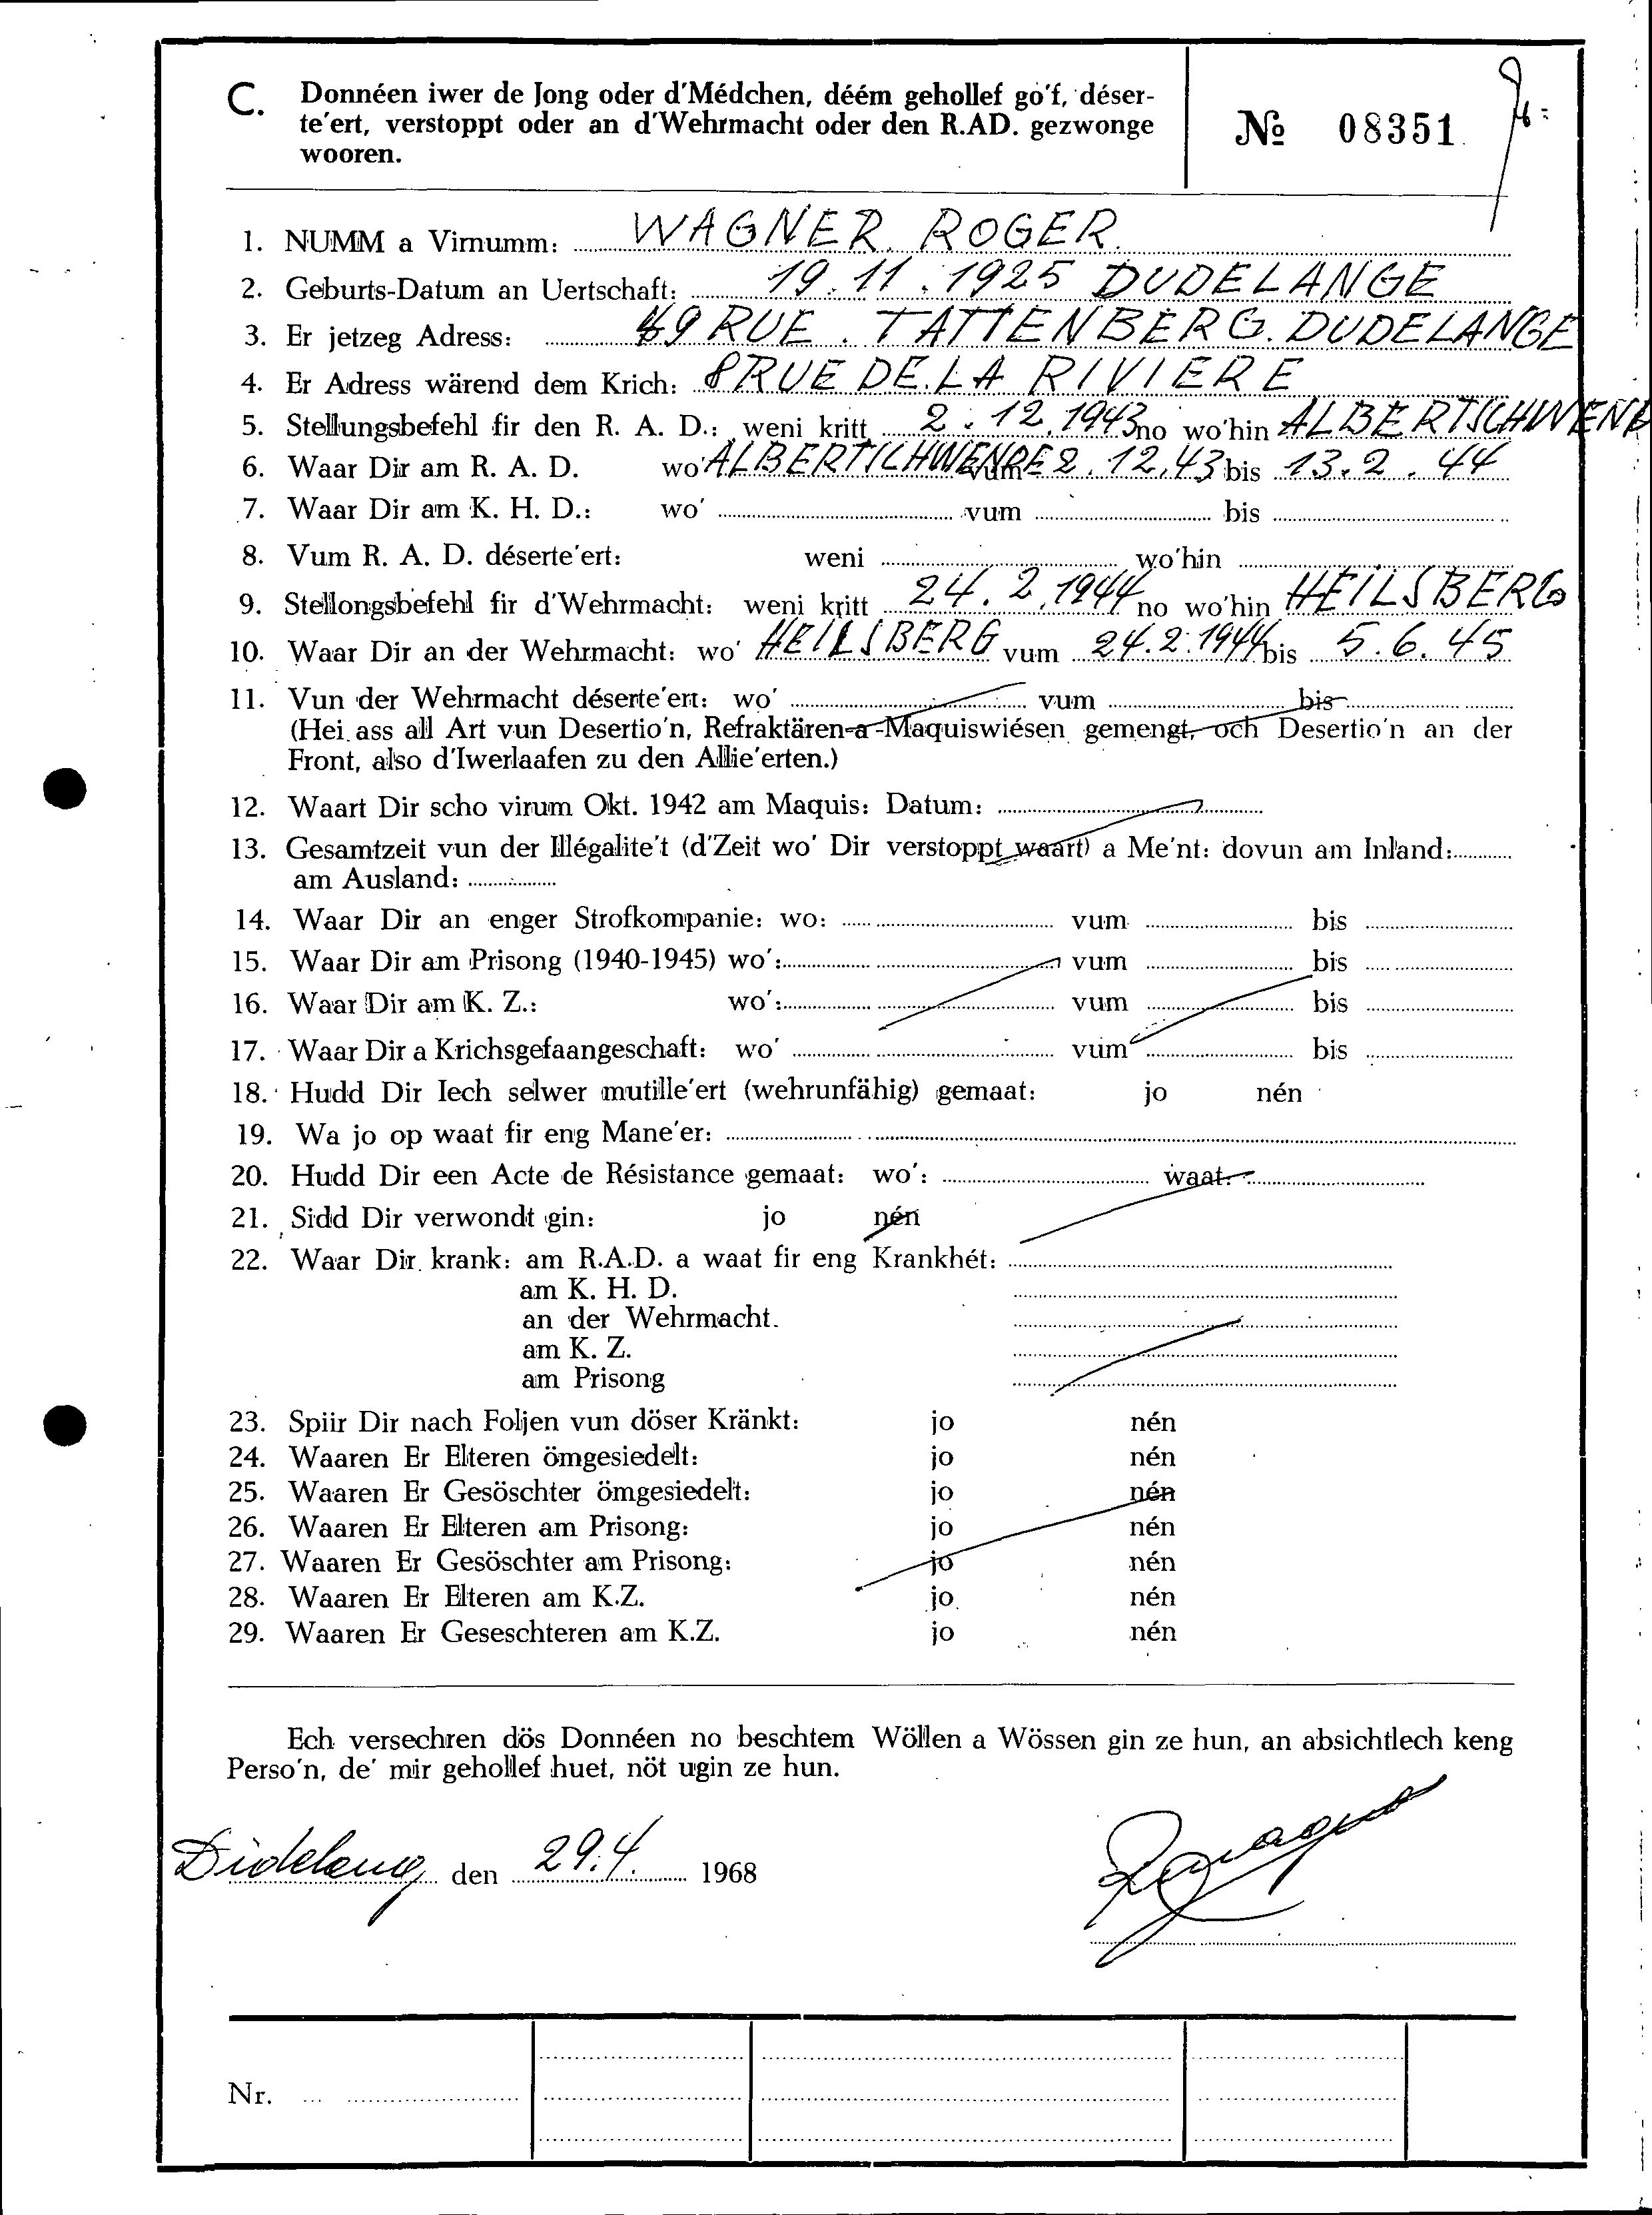 C. Donnéen iwer de Jong oder d'Médchen, déém gehollef go'f, déser-
te'ert, verstoppt oder an d'Wehrmacht oder den R.AD. gezwonge
wooren.
№ 08351
1. NUMM a Virnumm: WAGNER ROGER
2. Geburts-Datum an Uertschaft: 19.11.1925 DUDELANGE
3. Er jetzeg Adress: 49 RUE TATTENBERG. DUDELANGE
4. Er Adress wärend dem Krich: 8 RUE DE LA RIVIERE
5. Stellungsbefehl fir den R. A. D.: weni kritt 2.12.1943 no wo'hin ALBERTSCHWEND
6. Waar Dir am R. A. D. wo' ALBERTSCHWENDE vum 2.12.43 bis 13.2.44
7. Waar Dir am K. H. D.: wo' vum bis
8. Vum R. A. D. déserte'ert: weni wo'hin
9. Stellongsbefehl fir d'Wehrmacht: weni kritt 24.2.1944 no wo'hin HEILSBERG
10. Waar Dir an der Wehrmacht: wo' HEILSBERG vum 24.2.1944 bis 5.6.45
11. Vun der Wehrmacht déserte'ert: wo' vum bis
(Hei ass all Art vun Desertio'n, Refraktären-a-Maquiswiésen gemengt, och Desertio'n an der
Front, also d'Iwerlaafen zu den Allie'erten.)
12. Waart Dir scho virum Okt. 1942 am Maquis: Datum:
13. Gesamtzeit vun der Illégalite't (d'Zeit wo' Dir verstoppt waart) a Me'nt: dovun am Inland:
am Ausland:
14. Waar Dir an enger Strofkompanie: wo: vum bis
15. Waar Dir am Prisong (1940-1945) wo': vum bis
16. Waar Dir am K. Z.: wo': vum bis
17. Waar Dir a Krichsgefaangeschaft: wo' vum bis
18. Hudd Dir Iech selwer mutille'ert (wehrunfähig) gemaat: jo nén
19. Wa jo op waat fir eng Mane'er:
20. Hudd Dir een Acte de Résistance gemaat: wo': waat:
21. Sidd Dir verwondt gin: jo nén
22. Waar Dir krank: am R.A.D. a waat fir eng Krankhét:
am K. H. D.
an der Wehrmacht.
am K. Z.
am Prisong
23. Spiir Dir nach Foljen vun döser Kränkt: jo nén
24. Waaren Er Elteren ömgesiedelt: jo nén
25. Waaren Er Gesöschter ömgesiedelt: jo nén
26. Waaren Er Elteren am Prisong: jo nén
27. Waaren Er Gesöschter am Prisong: jo nén
28. Waaren Er Elteren am K.Z. jo nén
29. Waaren Er Geseschteren am K.Z. jo nén
Ech versechren dös Donnéen no beschtem Wöllen a Wössen gin ze hun, an absichtlech keng
Perso'n, de' mir gehollef huet, nöt ugin ze hun.
Dideleng den 29.4. 1968
Nr.